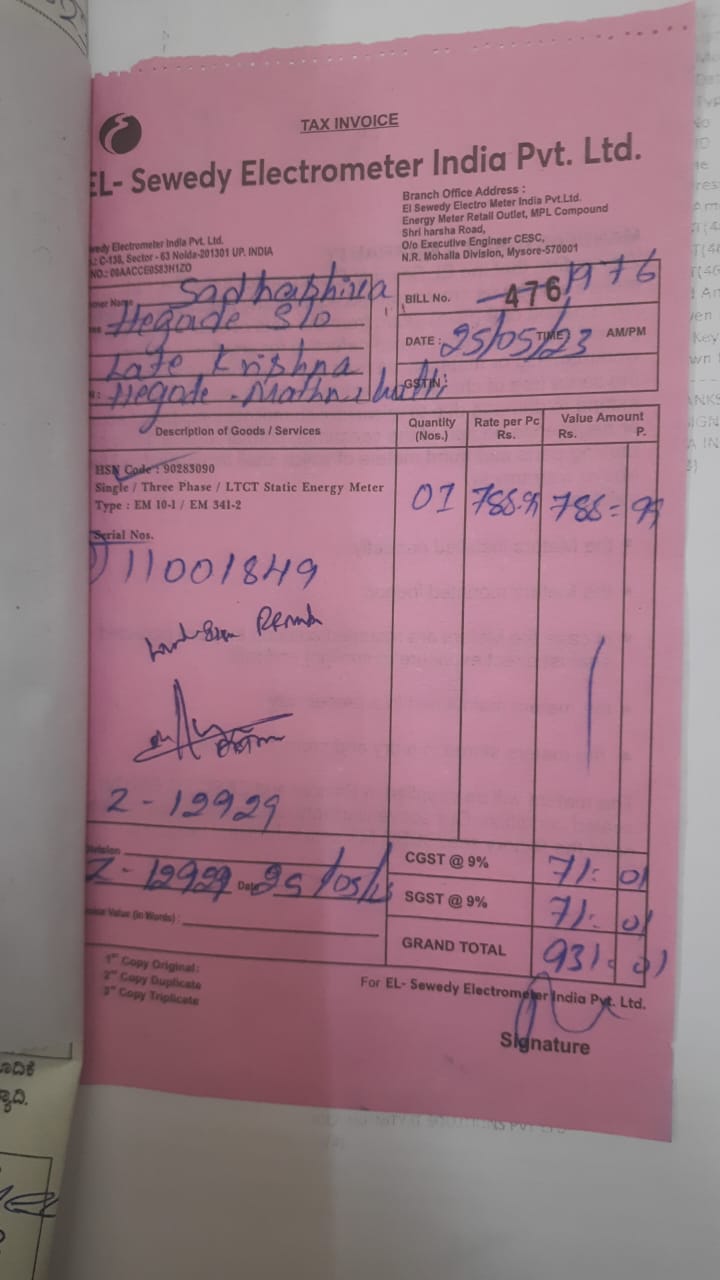 TAX INVOICE
EL- Sewedy Electrometer India Pvt. Ltd.
Branch Office Address :
El Sewedy Electro Meter India Pvt.Ltd.
Energy Meter Retail Outlet, MPL Compound
Shri harsha Road,
O/o Executive Engineer CESC,
N.R. Mohalla Division, Mysore-570001
wedy Electrometer India Pvt. Ltd.
.: C-138, Sector - 63 Noida-201301 UP. INDIA
omer Name
Hegade S/o
Late Krishna
Hegade
BILL No. 476 1976
DATE : 25/05/23 TIME AM/PM
GSTIN :
Description of Goods / Services
Quantity (Nos.)
Rate per Pc Rs.
Value Amount Rs. P.
HSN Code : 90283090
Single / Three Phase / LTCT Static Energy Meter
Type : EM 10-1 / EM 341-2
01 788.99 788 = 99
Serial Nos.
1) 11001849
Z - 12929
CGST @ 9% 71 : 01
Z - 12929 Date 25/05/
SGST @ 9% 71 : 01
Value (in Words) :
GRAND TOTAL 931 : 01
1st Copy Original:
2nd Copy Duplicate
3rd Copy Triplicate
For EL- Sewedy Electrometer India Pvt. Ltd.
Signature